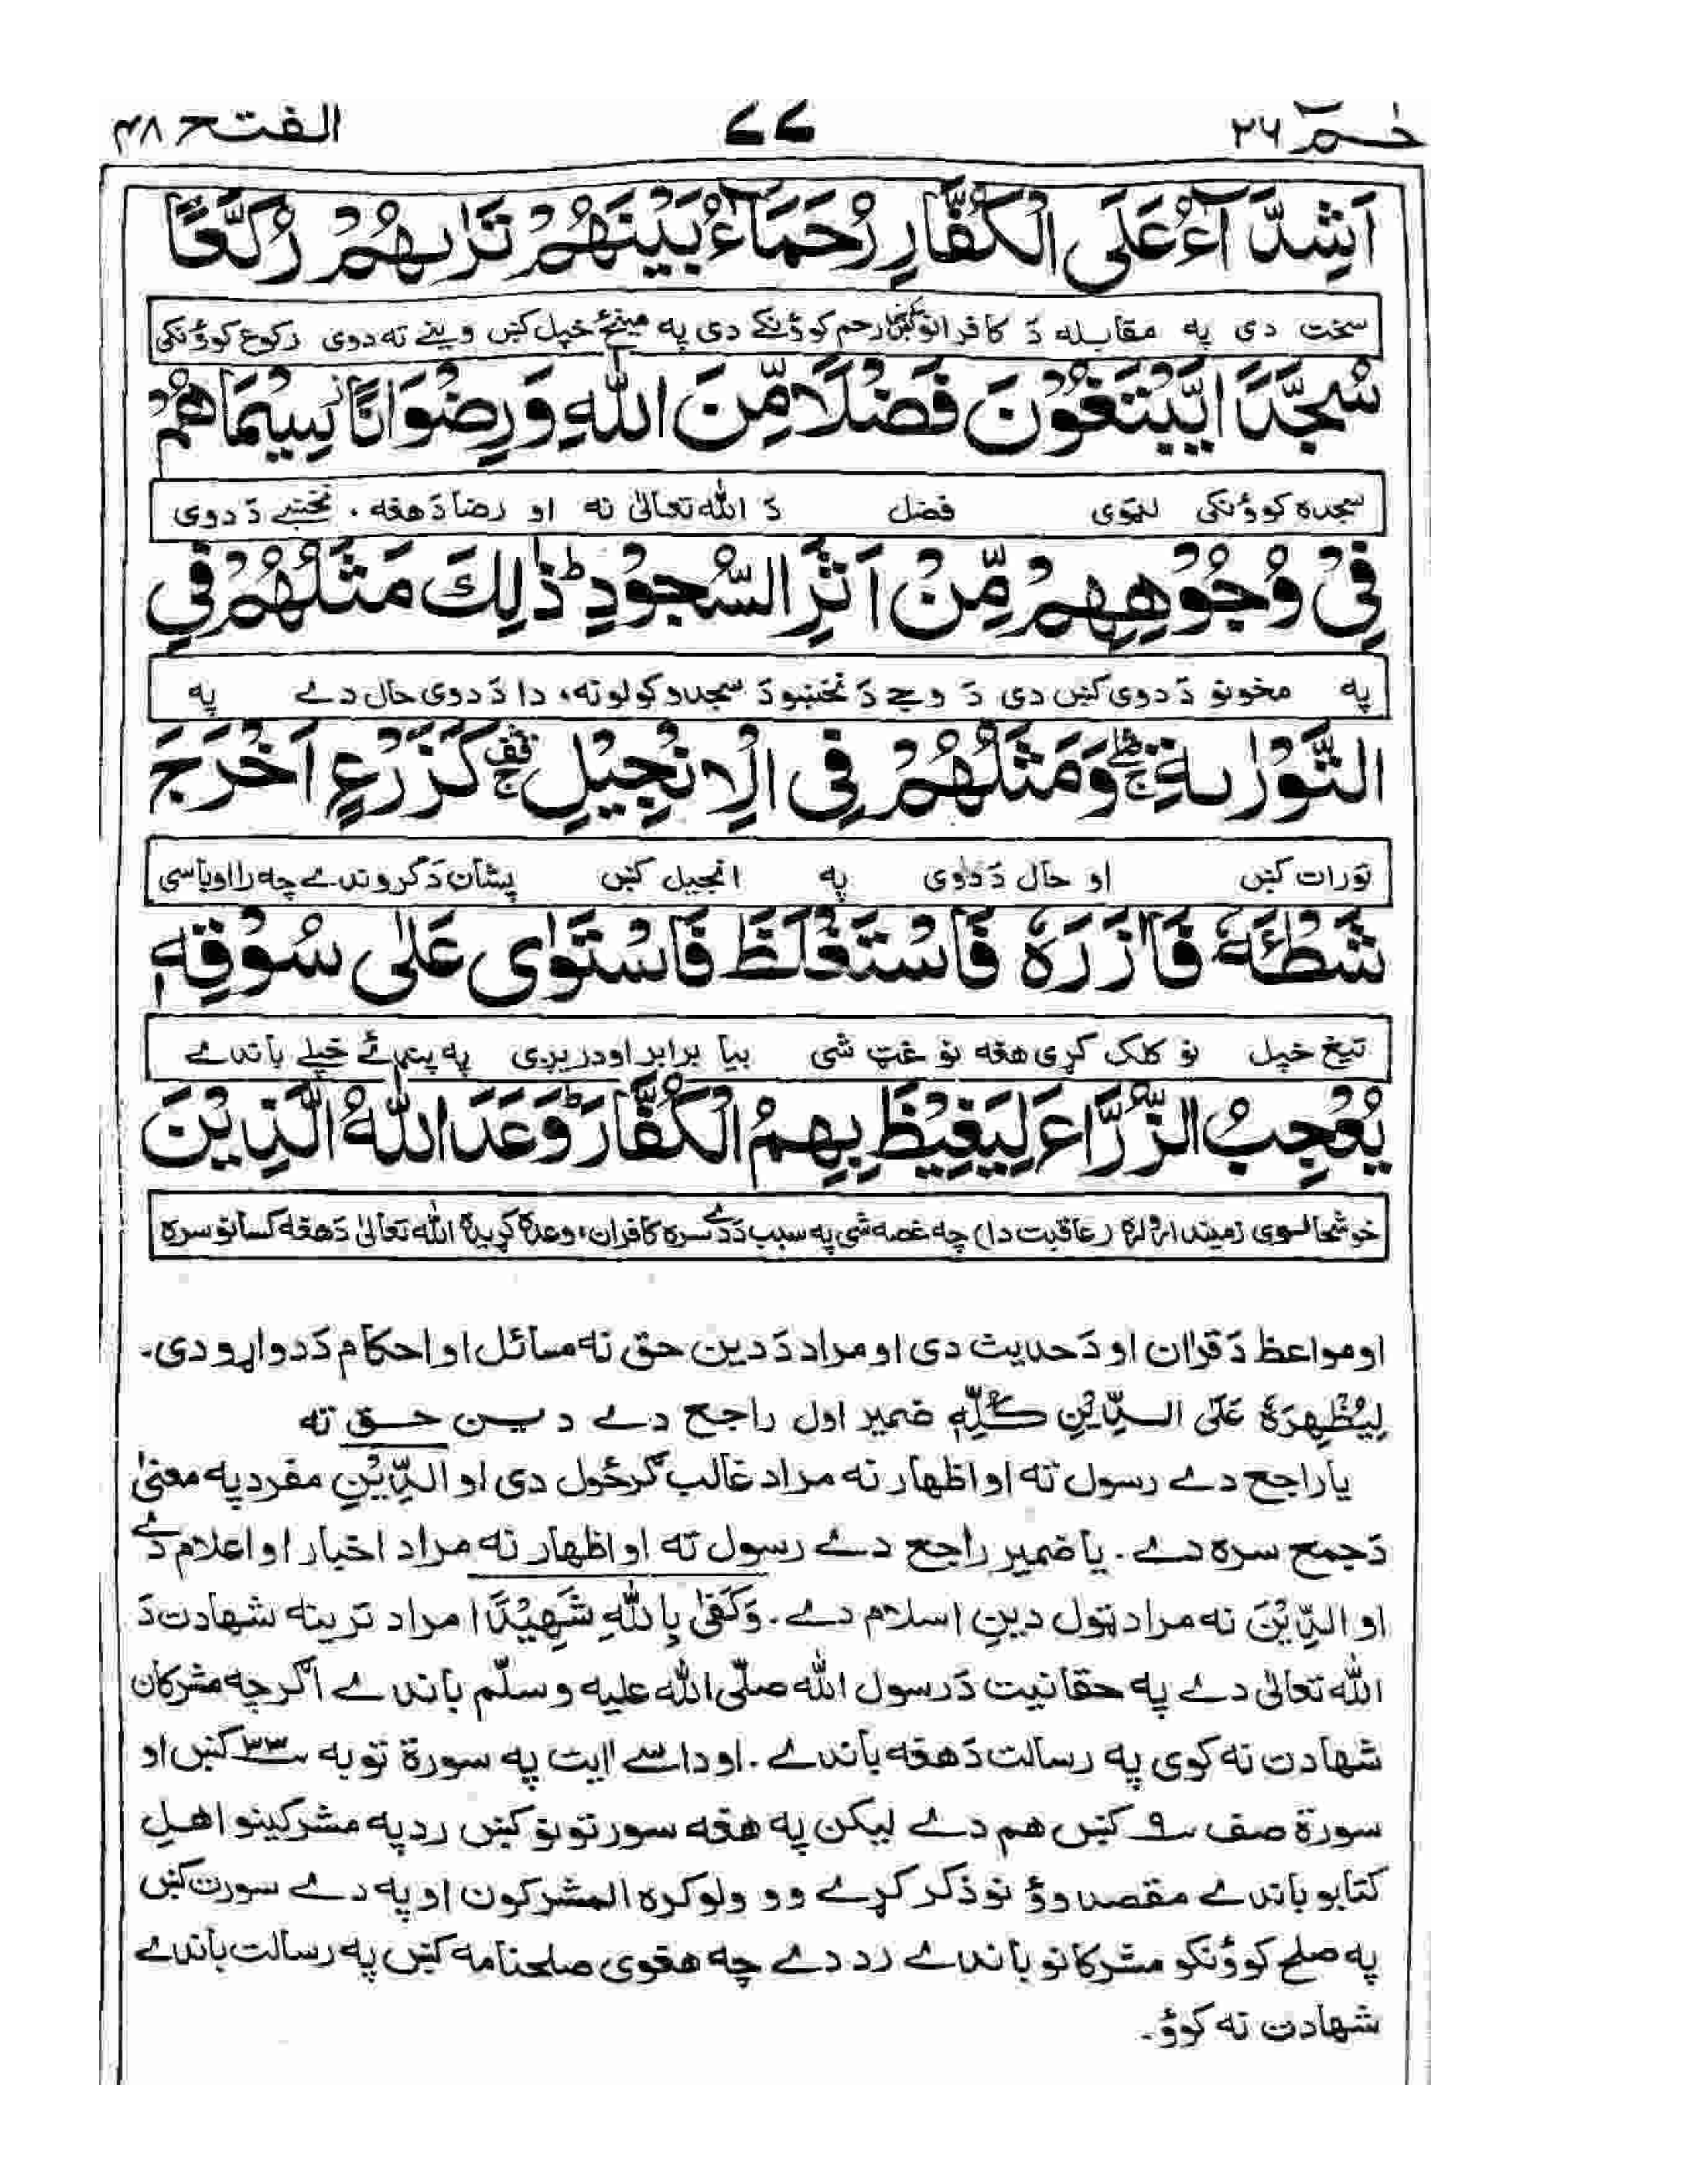 حٰمٓ ٢٦ ٧٧ الفتح ٤٨
اَشِدَّآءُ عَلَى الْكُفَّارِ رُحَمَآءُ بَيْنَهُمْ تَرٰىهُمْ رُكَّعًا
سخت دی په مقابله دَ کافرانو کښ رحم کوؤنکے دی په مینځ خپل کښ وینے ته دوی رکوع کوؤنکی
سُجَّدًا يَّبْتَغُوْنَ فَضْلًا مِّنَ اللّٰهِ وَرِضْوَانًا سِيْمَاهُمْ
سجده کوؤنکی لټوی فضل دَ الله تعالیٰ نه او رضا دَ هغه، نخښے دَ دوی
فِيْ وُجُوْهِهِمْ مِّنْ اَثَرِ السُّجُوْدِ ؕ ذٰلِكَ مَثَلُهُمْ فِي
په مخونو دَ دوی کښ دی دَ وجے دَ نخښو دَ سجدو کولو نه، دا دَ دوی حال دے په
التَّوْرٰىةِ ۛۚ وَمَثَلُهُمْ فِي الْاِنْجِيْلِ ۛۚ كَزَرْعٍ اَخْرَجَ
تورات کښ او حال دَ دوی په انجیل کښ پشان دَ کروندے چه رااوباسی
شَطْـَٔهٗ فَاٰزَرَهٗ فَاسْتَغْلَظَ فَاسْتَوٰى عَلٰى سُوْقِهٖ
تیغ خپل نو کلک کړی هغه نو غټ شی بیا برابر اودریږی په پنډئ خپلے باندے
يُعْجِبُ الزُّرَّاعَ لِيَغِيْظَ بِهِمُ الْكُفَّارَ ؕ وَعَدَ اللّٰهُ الَّذِيْنَ
خوشحالوی زمیندارو لره (عاقبت دا) چه غصه شی په سبب دَ دے سره کافران، وعده کړیده الله تعالیٰ دَ هغه کسانو سره
او مواعظ دَ قران او دَ حدیث دی او مراد دَ دین حق نه مسائل او احکام دَ دواړو دی۔
لِيُظْهِرَهٗ عَلَى الدِّيْنِ كُلِّهٖ ضمیر اول راجع دے دین حق ته
یا راجع دے رسول ته او اظهار نه مراد غالب گرځول دی او الدِّيْنِ مفرد په معنیٰ
دَ جمع سره دے۔ یا ضمیر راجع دے رسول ته او اظهار نه مراد اخبار او اعلام دے
او الدِّيْنَ نه مراد ټول دین اسلام دے۔ وَكَفٰى بِاللّٰهِ شَهِيْدًا مراد ترینه شهادت دَ
الله تعالیٰ دے په حقانیت دَ رسول الله صلّی الله علیه وسلّم باندے اگرچه مشرکان
شهادت نه کوی په رسالت دَ هغه باندے۔ او داسے اایت په سورة توبه ٣٣ کښ او
سورة صف ٩ کښ هم دے لیکن په هغه سورتونو کښ رد په مشرکینو اهلِ
کتابو باندے مقصد وؤ نو ذکر کړے وو ولوکره المشرکون او په دے سورت کښ
په صلح کوؤنکو مشرکانو باندے رد دے چه هغوی صلحنامه کښ په رسالت باندے
شهادت نه کوؤ۔